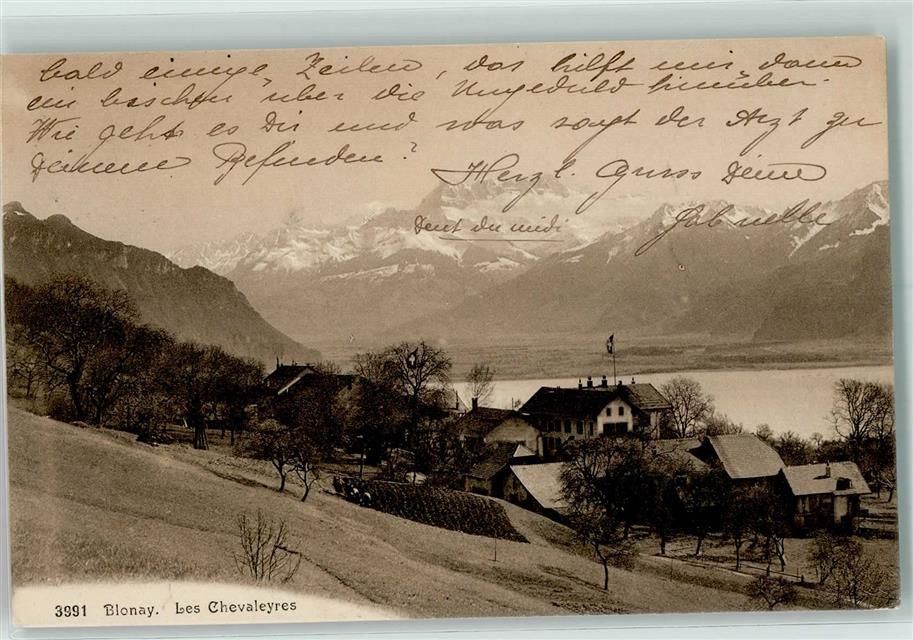 bald einige Zeilen, das hilft mir dann
ein bischen über die Ungeduld hinüber.
Wie geht es Dir und was sagt der Arzt zu
Deinem Befinden?
Herzl. Gruss Deine
Gabrielle
Dent du midi
3991 Blonay. Les Chevaleyres